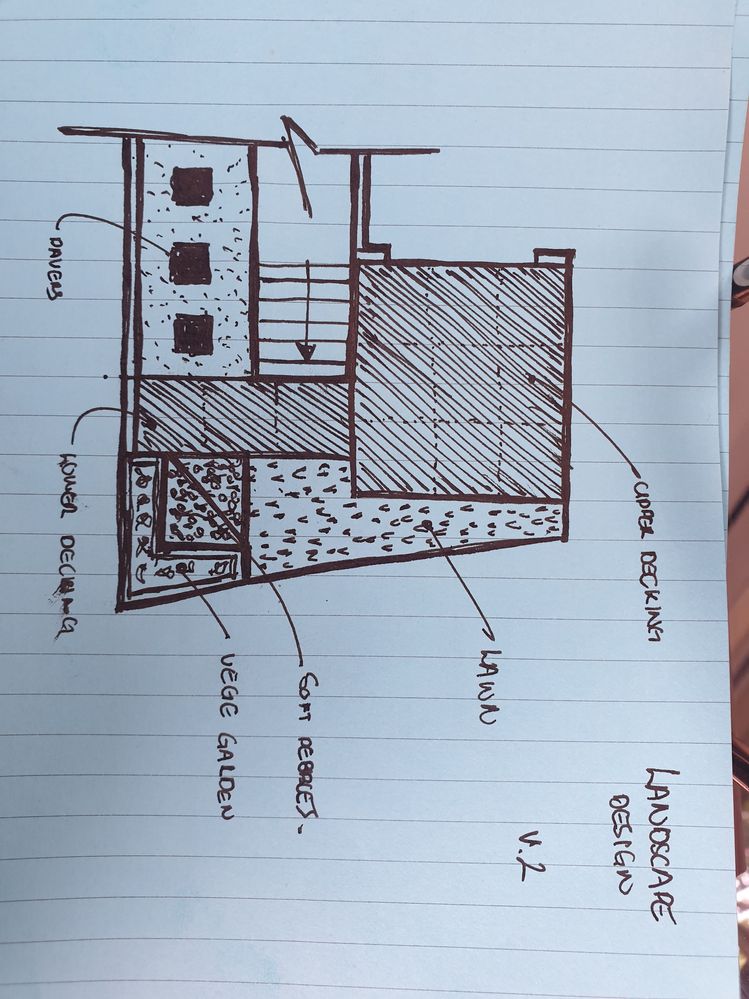 LANDSCAPE
DESIGN
V.2
UPPER DECKING
LAWN
SOFT PEBBLES.
VEGE GARDEN
LOWER DECKING
PAVERS